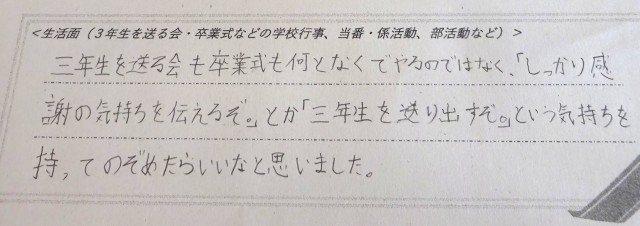 <生活面（３年生を送る会・卒業式などの学校行事、当番・係活動、部活動など）>
三年生を送る会も卒業式も何となくでやるのではなく、「しっかり感
謝の気持ちを伝えるぞ。」とか「三年生を送り出すぞ。」という気持ちを
持ってのぞめたらいいなと思いました。